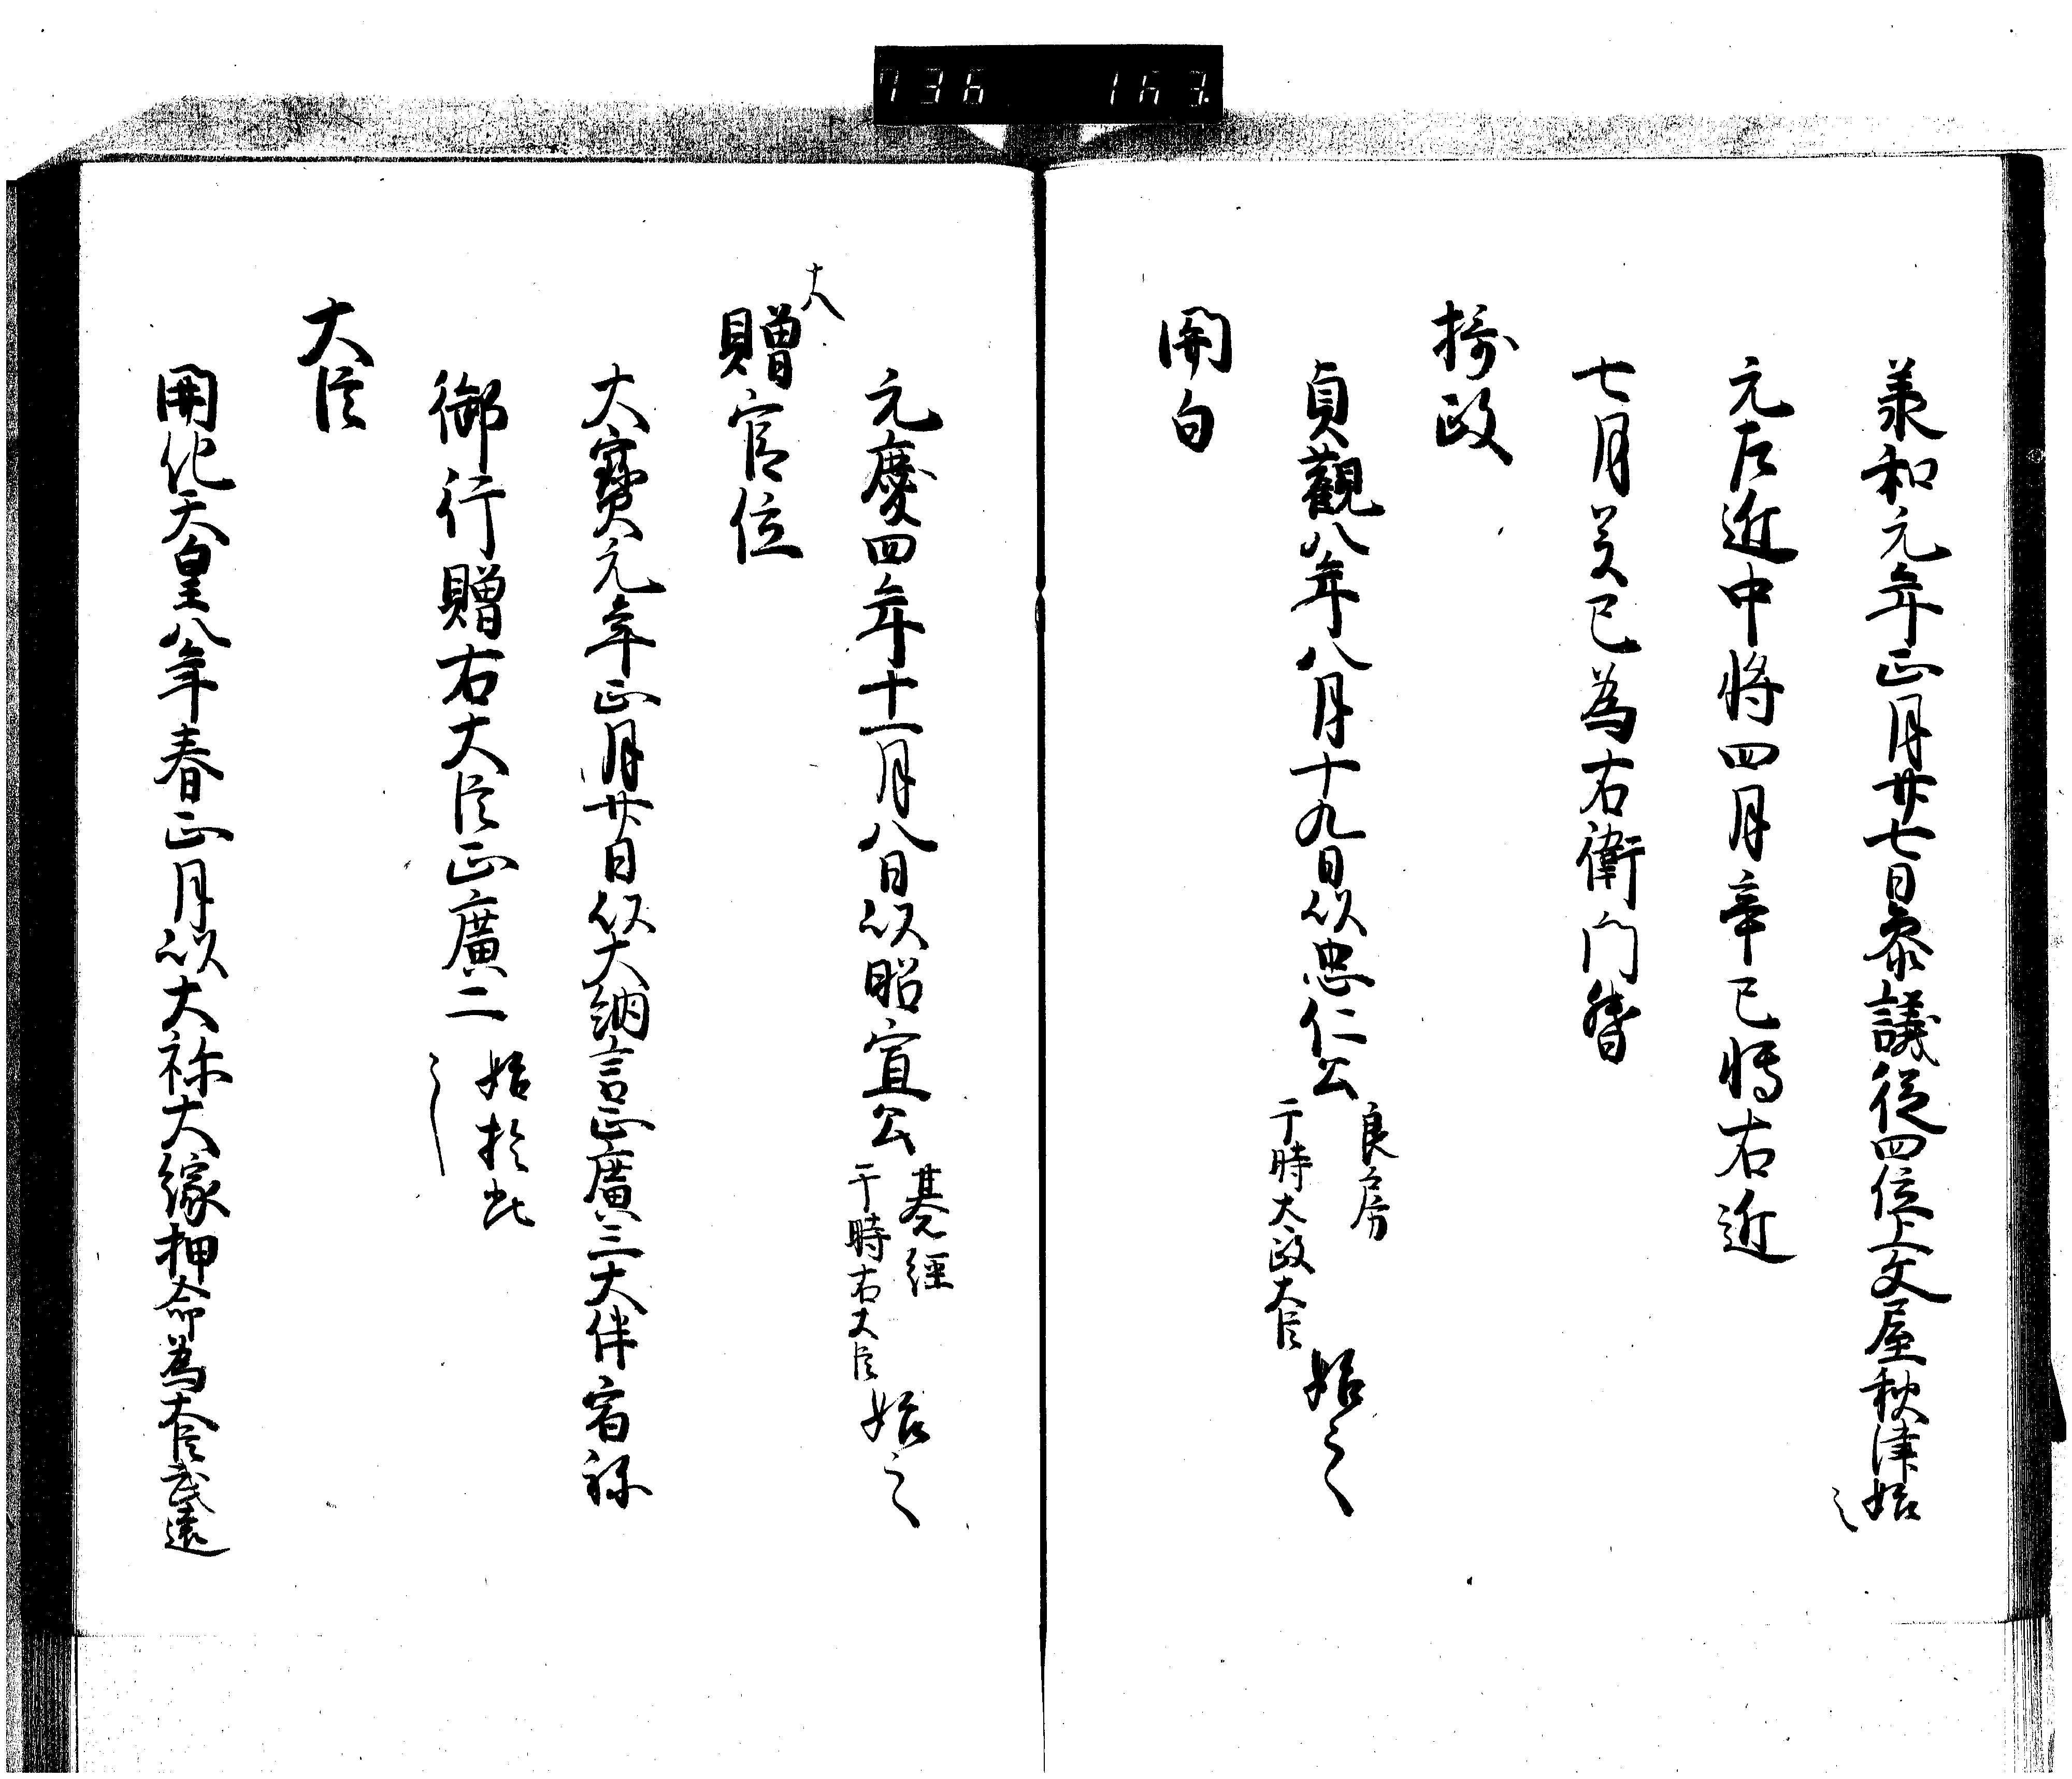 736 163
承和元年正月廿七日参議従四位上文屋秋津始之
元左近中将四月辛巳将右近
七月癸巳為右衛門督
摂政
貞觀八年八月十九日以忠仁公 良房 于時大政大臣 始之
関白
元慶四年十一月八日以昭宣公 基經 于時右大臣 始之
大
贈官位
大寳元年正月廿日以大納言正廣三大伴宿祢
御行贈右大臣正廣二 始於此之
大臣
開化天皇八年春正月以大祢大縁押命為大臣武遠